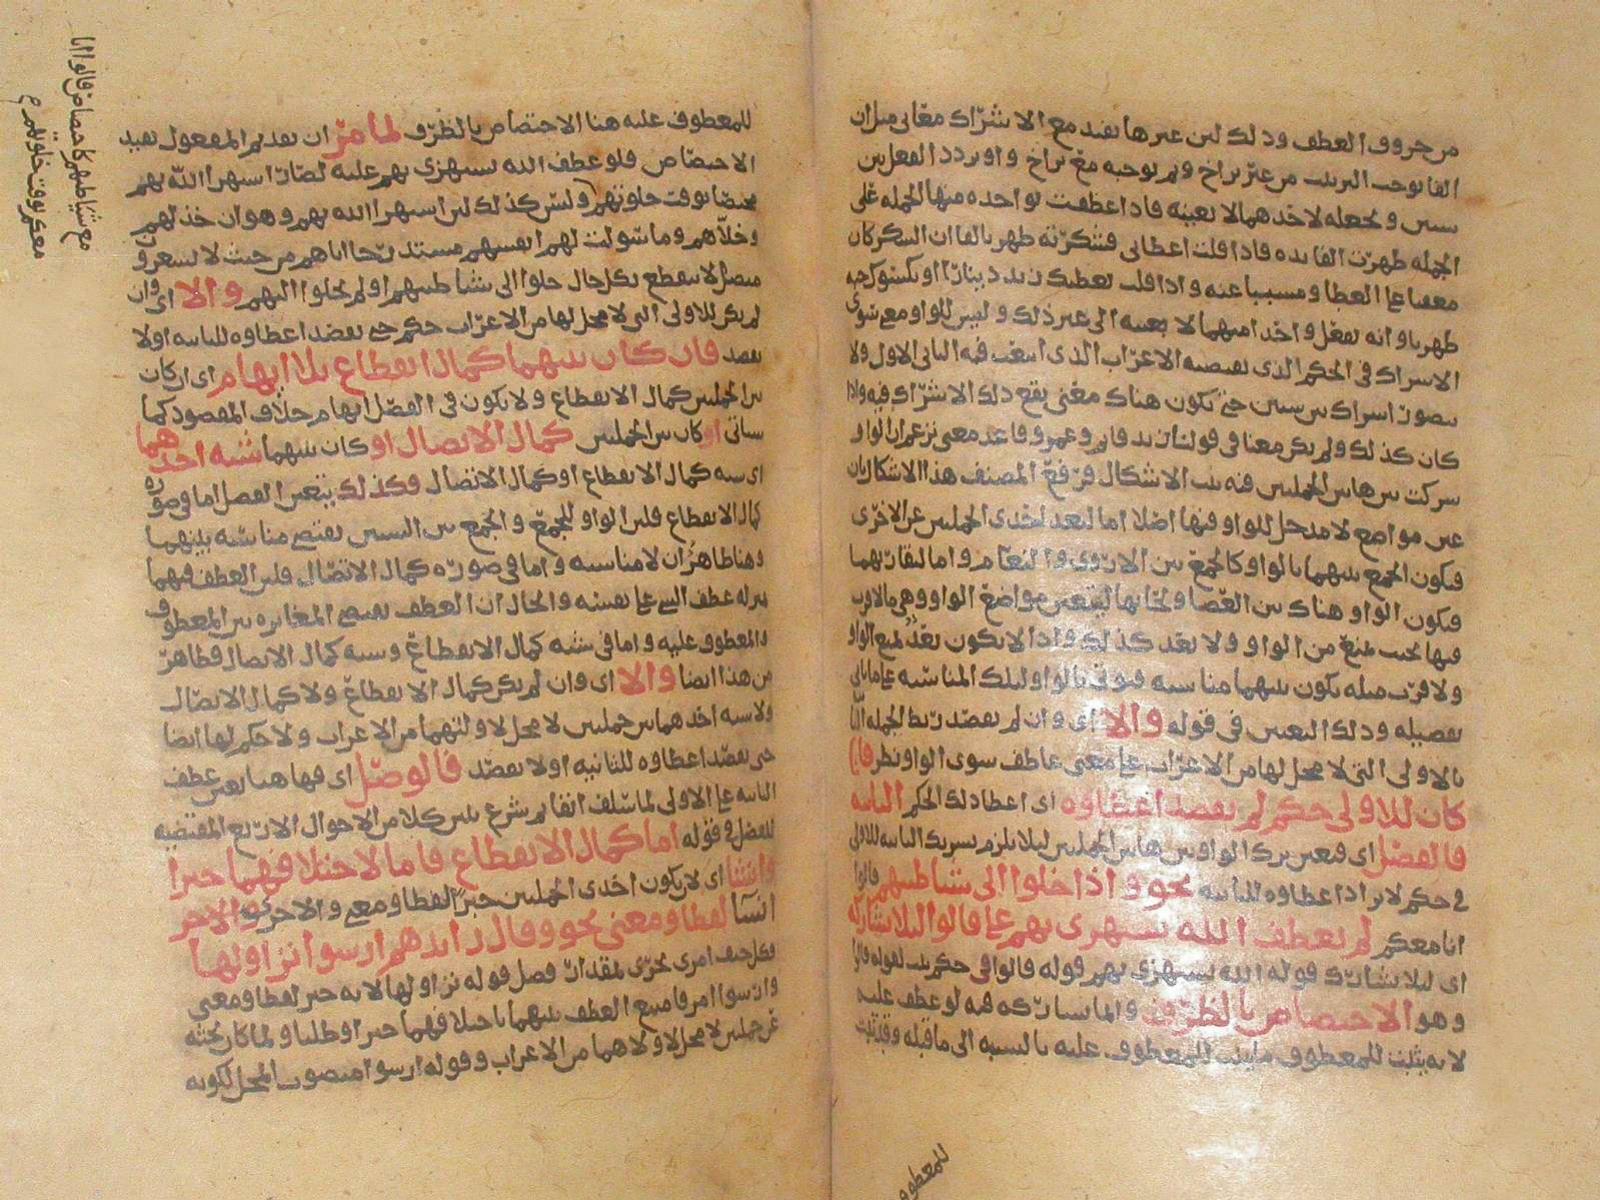 من حروف العطف وذلك لان غيرها يفيد مع الاشتراك معاني مثل ان
الفا توجب الترتيب من غير تراخ وثم توجبه مع تراخ واو تردد الفعل بين
شيئين وتجعله لاحدهما لا بعينه فاذا عطفت بواحده منها الجمله على
الجمله ظهرت الفايده فاذا قلت اعطاني فشكرته ظهر بالفا ان الشكر كان
معقبا على العطا ومسببا عنه واذا قلت يعطيك زيد دينارا او يكسوك جبه
ظهر باو انه يفعل واحدا منهما لا بعينه الى غير ذلك وليس للواو معنى سوى
الاشراك في الحكم الذي يقتضيه الاعراب الذي اتبعت فيه الثاني الاول ولا
يتصور اشراك بين شيئين حتى يكون هناك معنى يقع ذلك الاشتراك فيه واذا
كان كذلك ولم يكن معنا في قولنا زيد قايم وعمرو قاعد معنى نزعم ان الواو
شركت بين هاتين الجملتين فيه ثبت الاشكال فرفع المصنف هذا الاشكال بان
عين مواضع لا مدخل للواو فيها اصلا اما لبعد احدى الجملتين عن الاخرى
فيكون الجمع بينهما بالواو كالجمع بين الاروى والنعام واما لتقاربهما
فيكون الواو هناك بين العصا ولحائها ليتعين مواضع الواو وهي ما لا قرب
فيها بحيث يمنع من الواو ولا بعد كذلك واذا لا يكون بعد يمنع الواو
ولا قرب مثله يكون بينهما مناسبه فيوتى بالواو لتلك المناسبه على ما ياتي
تفصيله وذلك التعيين في قوله والا اي وان لم يقصد ربط الجمله الثانية
بالاولى التي لا محل لها من الاعراب على معنى عاطف سوى الواو نظر فان
كان للاولى حكم لم يقصد اعطاوه اي اعطا ذلك الحكم الثانيه
فالفصل اي فيعين ترك الواو بين هاتين الجملتين ليلا يلزم تشريك الثانيه للاولى
في حكم لا يراد اعطاوه للثانيه نحو واذا خلوا الى شياطينهم قالوا
انا معكم لم يعطف الله يستهزى بهم على قالوا ليلا يشاركه
اي ليلا يشارك قوله الله يستهزي بهم قوله قالوا في حكم ثبت لقوله قالوا
وهو الاختصاص بالظرف وانما يشاركه فيه لو عطف عليه
لانه يثبت للمعطوف ما يثبت للمعطوف عليه بالنسبه الى ما قبله وقد ثبت
للمعطوف
للمعطوف عليه هنا الاختصاص بالظرف لما مر ان تقديم المفعول يفيد
الاختصاص فلو عطف الله يستهزي بهم عليه لصار استهزا الله بهم
مختصا بوقت خلوتهم وليس كذلك لان استهزا الله بهم وهو ان خذلهم
وخلاهم وما سولت لهم انفسهم مستدرجا اياهم من حيث لا يشعرون
متصل لا ينقطع بكل حال خلوا الى شياطينهم او لم يخلوا اليهم والا اي وان
لم يكن للاولى التي لا محل لها من الاعراب حكم حتى يقصد اعطاوه للثانيه او لا
يقصد فان كان بينهما كمال انقطاع بلا ايهام اي ان كان
بين الجملتين كمال الانقطاع ولا يكون في الفصل ايهام خلاف المقصود كما
سياتي او كان بين الجملتين كمال الاتصال او كان بينهما شبه احدهما
اي شبه كمال الانقطاع او كمال الاتصال فكذلك يتعين الفصل اما في صوره
كمال الانقطاع فلان الواو للجمع والجمع بين الشيئين يقتضي مناسبه بينهما
وهنا ظاهر ان لا مناسبه واما في صوره كمال الاتصال فلان العطف فيهما
بمنزله عطف الشي على نفسه والحال ان العطف يقتضي المغايره بين المعطوف
والمعطوف عليه واما في شبه كمال الانقطاع وشبه كمال الاتصال فظاهر
من هذا ايضا والا اي وان لم يكن كمال الانقطاع ولا كمال الاتصال
ولا شبه احدهما بين جملتين لا محل لاولتهما من الاعراب ولا حكم لها ايضا
حتى يقصد اعطاوه للثانيه او لا يقصد فالوصل اي فيها هنا يعين عطف
الثانيه على الاولى لما سلف انفا ثم شرع يبين كلا من الاحوال الاربع المقتضيه
للفصل في قوله اما كمال الانقطاع فاما لاختلافهما خبرا
وانشا اي لان يكون احدى الجملتين خبرا لفظا ومعنى والاخرى والاخر
انشا لفظا ومعنى نحو وقال رايدهم ارسوا نزاولها
فكل حتف امرى يجرى لمقدار فصل قوله نزاولها لانه خبر لفظا ومعنى
وارسوا امر فامتنع العطف بينهما باختلافهما خبرا وطلبا ولما كان بحثه
عن جملتين لا محل لاولاهما من الاعراب وقوله ارسوا منصوب المحل لكونه
مع شياطينهم كاختصاص قالوا انا
معكم بوقت خلوتهم